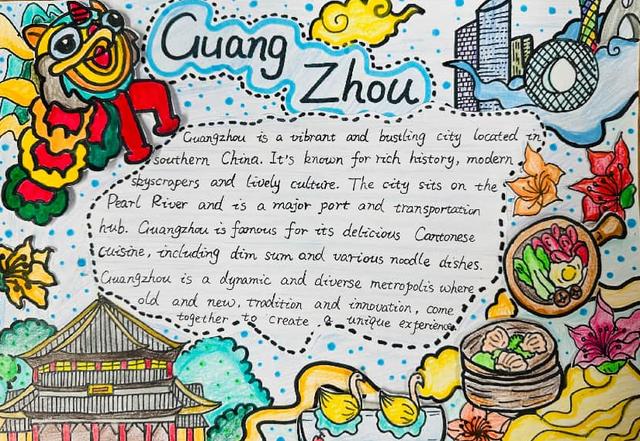 Guang
Zhou
Guangzhou is a vibrant and bustling city located in
southern China. It's known for rich history, modern
skyscrapers and lively culture. The city sits on the
Pearl River and is a major port and transportation
hub. Guangzhou is famous for its delicious Cantonese
cuisine, including dim sum and various noodle dishes.
Guangzhou is a dynamic and diverse metropolis where
old and new, tradition and innovation, come
together to create a unique experience.